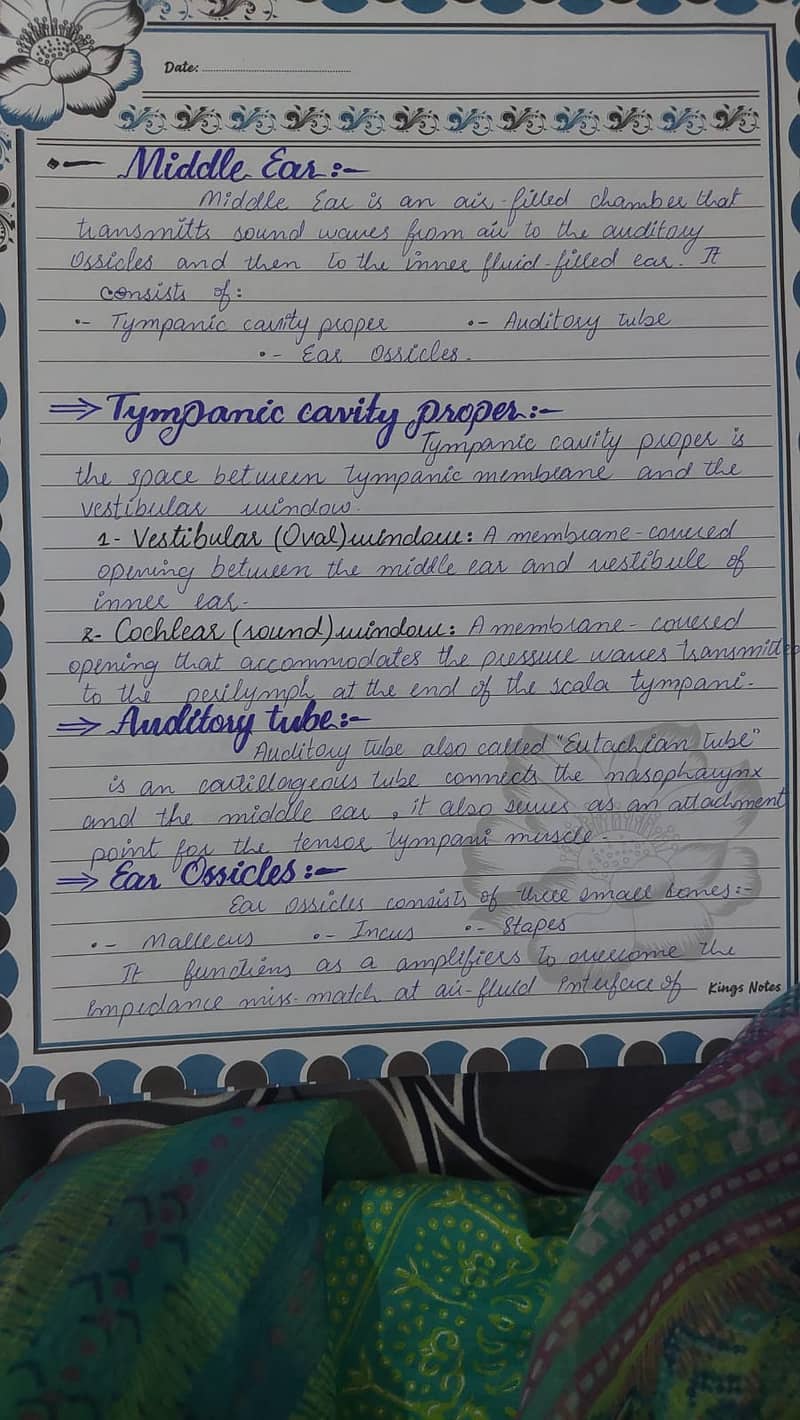 Date:
•— Middle Ear:-
Middle Ear is an air-filled chamber that
transmitts sound waves from air to the auditory
Ossicles and then to the inner fluid-filled ear. It
consists of:
•- Tympanic cavity proper •- Auditory tube
•- Ear Ossicles.
⇒ Tympanic cavity proper:-
Tympanic cavity proper is
the space between tympanic membrane and the
vestibular window.
1- Vestibular (Oval) window: A membrane-covered
opening between the middle ear and vestibule of
inner ear.
2- Cochlear (round) window: A membrane-covered
opening that accommodates the pressure waves transmitted
to the perilymph at the end of the scala tympani.
⇒ Auditory tube:-
Auditory tube also called "Eutachian tube"
is an cartillageous tube connects the nasopharynx
and the middle ear, it also serves as an attachment
point for the tensor tympani muscle.
⇒ Ear Ossicles:-
Ear Ossicles consists of three small bones:-
•- Mallecus •- Incus •- Stapes
It functions as a amplifiers to overcome the
impedance miss-match at air-fluid interface of
Kings Notes